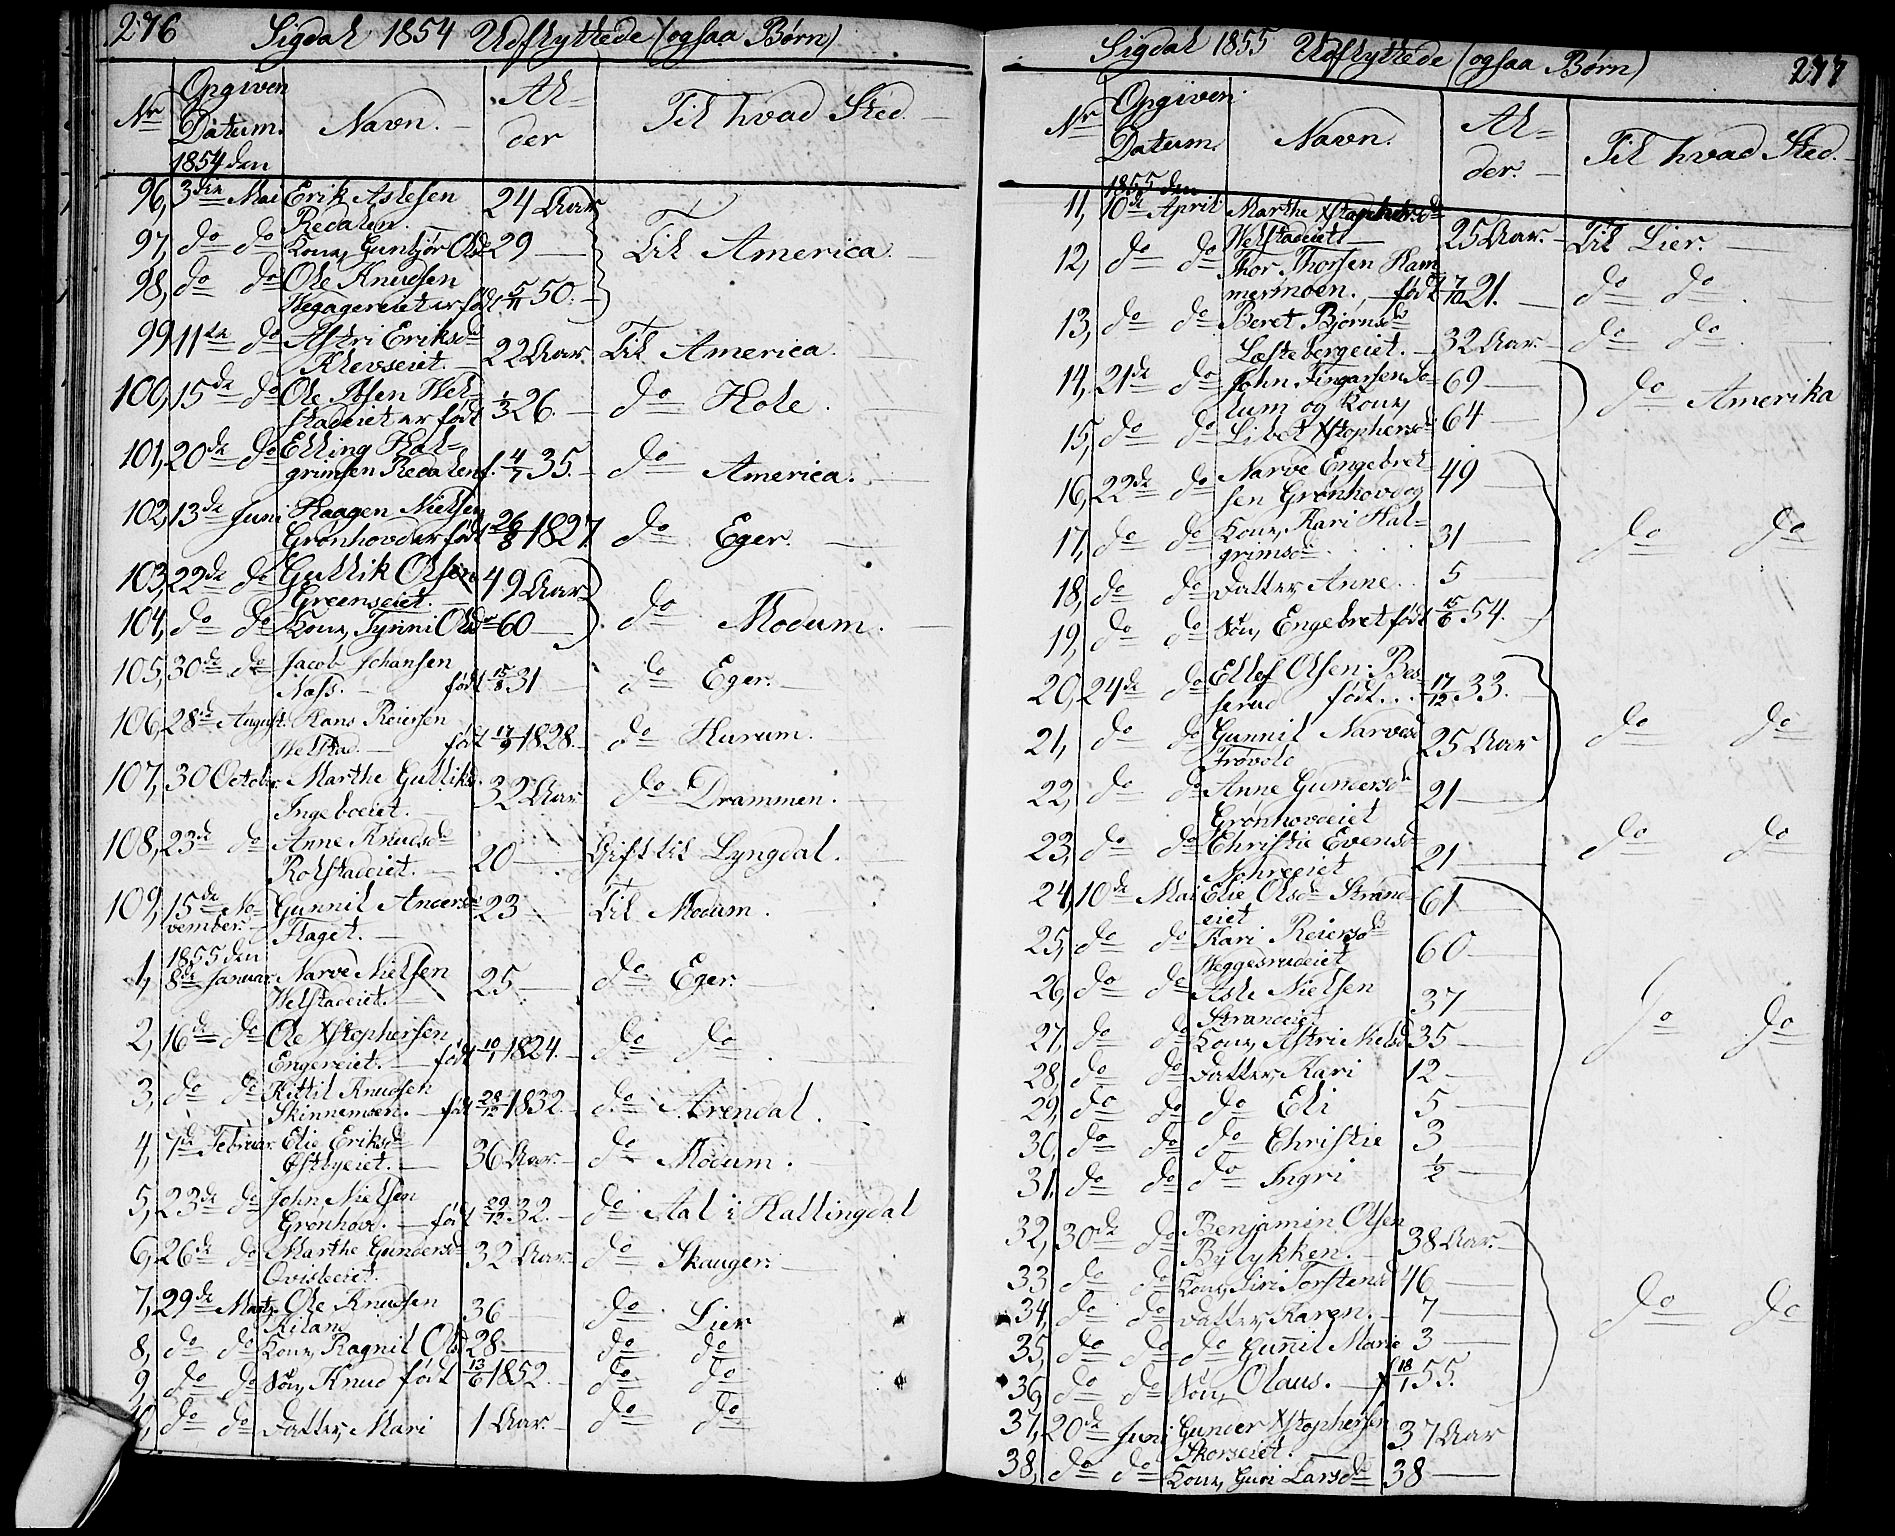 276 Sigdal 1854 Udflyttede (ogsaa Børn)
Nr Opgiven Datum. Navn. Alder Til hvad Sted.
1854 den
96, 3die Mai Erik Aslesen 24 Aar
Redalen.
97, do do Kone, Gunbjør Olsd 29 — Til America.
98, do do Ole Knudsen
Heggagereiet er født 5/11 50.
99, 11te do Astri Eriksd 22 Aar. Til America.
Klevseiet.
100, 15de do Ole Olsen Hel- 1/3 26. do Hole.
stadeiet er født
101, 20de do Elling Hal-
grimsen Redalen f. 4/7 35. do America.
102, 13de Juni Haagen Nielsen
Grønhovd er født 26/8 1827 do Eger.
103, 22de do Gullik Olsen 49 Aar
Greenseiet.
104, do do Kone, Jynni Olsd 60 — do Modum.
105, 30de do Jacob Johansen
Næss. født 15/8 31 do Eger.
106, 28de August Hans Reiersen
Helstad. født 17/9 1828. do Hurum.
107, 30 October Marthe Gulliksd. 32 Aar do Drammen.
Ingeboeiet.
108, 23de do Anne Knudsd 20 — Gift til Lyngdal.
Rolstadeiet.
109, 15de No- Gunnil Andersd 23 Til Modum.
vember. Flaget.
1855 den
1, 8de Januar Narve Nielsen 25 — do Eger.
Helstadeiet.
2, 16de do Ole Xstophersen
Engereiet. født 10/1 1824. do do.
3, do do Kittil Knudsen
Skinnemoen. født 28/12 1832. do Arendal.
4, 7de Februar Elie Eriksd 36 Aar. do Modum.
Østbyeiet.
5, 23de do John Nielsen
Grønhovd. født 29/12 32. do Aal i Hallingdal
6, 26de do Marthe Gundersd 32 Aar. do Skauger.
Qvisleeiet.
7, 29de Marts Ole Knudsen 36 do Lier
8, do do Kone, Ragnil Olsd 28 do do
9, do do Søn, Knud født 13/6 1852. do do
do do Datter, Mari 1 Aar. do do
Sigdal 1855 Udflyttede (ogsaa Børn) 277
Nr Opgiven Datum. Navn. Alder. Til hvad Sted.
1855 den
11, 10de April Marthe Xstophersd
Helstadeiet 25 Aar. Til Lier.
12, do do Thor Thorsen Ham-
mermoen. født 7/10 21. do do.
13, do do Beret Bjørnsd
Læstebergeiet. 32 Aar. do do.
14, 21de do John Fingarsen So- 69
lum og Kone, do Amerika
15, do do Libet Xstophersd 64
16, 22de do Narve Engebret- 49
sen Grønhovd og
17, do do Kone, Kari Hal- 31 do do
grimsd
18, do do Datter, Anne 5
19, do do Søn, Engebret født 15/6 54.
20, 24de do Ellef Olsen Bes-
serud født 17/12 33.
21, do do Gunnil Narvesd 25 Aar do do
Frøvold
22, do do Anne Gundersd 21
Grønhovdeiet
23, do do Christie Evensd 21 do do
24, 10de Mai Elie Olsd Strand- 61
eiet
25, do do Kari Reiersd 60
Heggesrudeiet
26, do do Asle Nielsen 37
Strandeiet do do
27, do do Kone, Astri Nielsd 35
28, do do Datter, Kari 12
29, do do do Eli 5
30, do do do Christie 3
31, do do do Ingri 1/2
32, 30de do Benjamin Olsen 38 Aar.
Bylykken.
33 do do Kone, Siri Torstensd 46
34, do do Datter, Karen. 7 do do
35, do do do Gunil Marie 3
36, do do Søn, Olaus. f 18/1 55.
37, 20de Juni Gunder Xstophersen 37 Aar
Skorseiet.
38, do do Kone, Guri Larsd 38